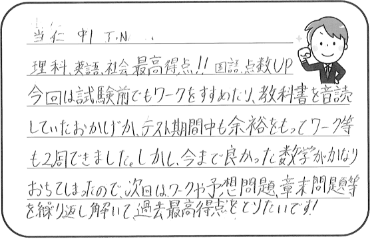 当仁中1 T.N.
理科、英語、社会最高得点!! 国語、点数UP
今回は試験前でもワークをすすめたり、教科書を音読
していたおかげか、テスト期間中も余裕をもってワーク等
も2周できました。しかし、今まで良かった数学がかなり
おちてしまったので、次回はワークや予想問題、章末問題等
を繰り返し解いて、過去最高得点をとりたいです!